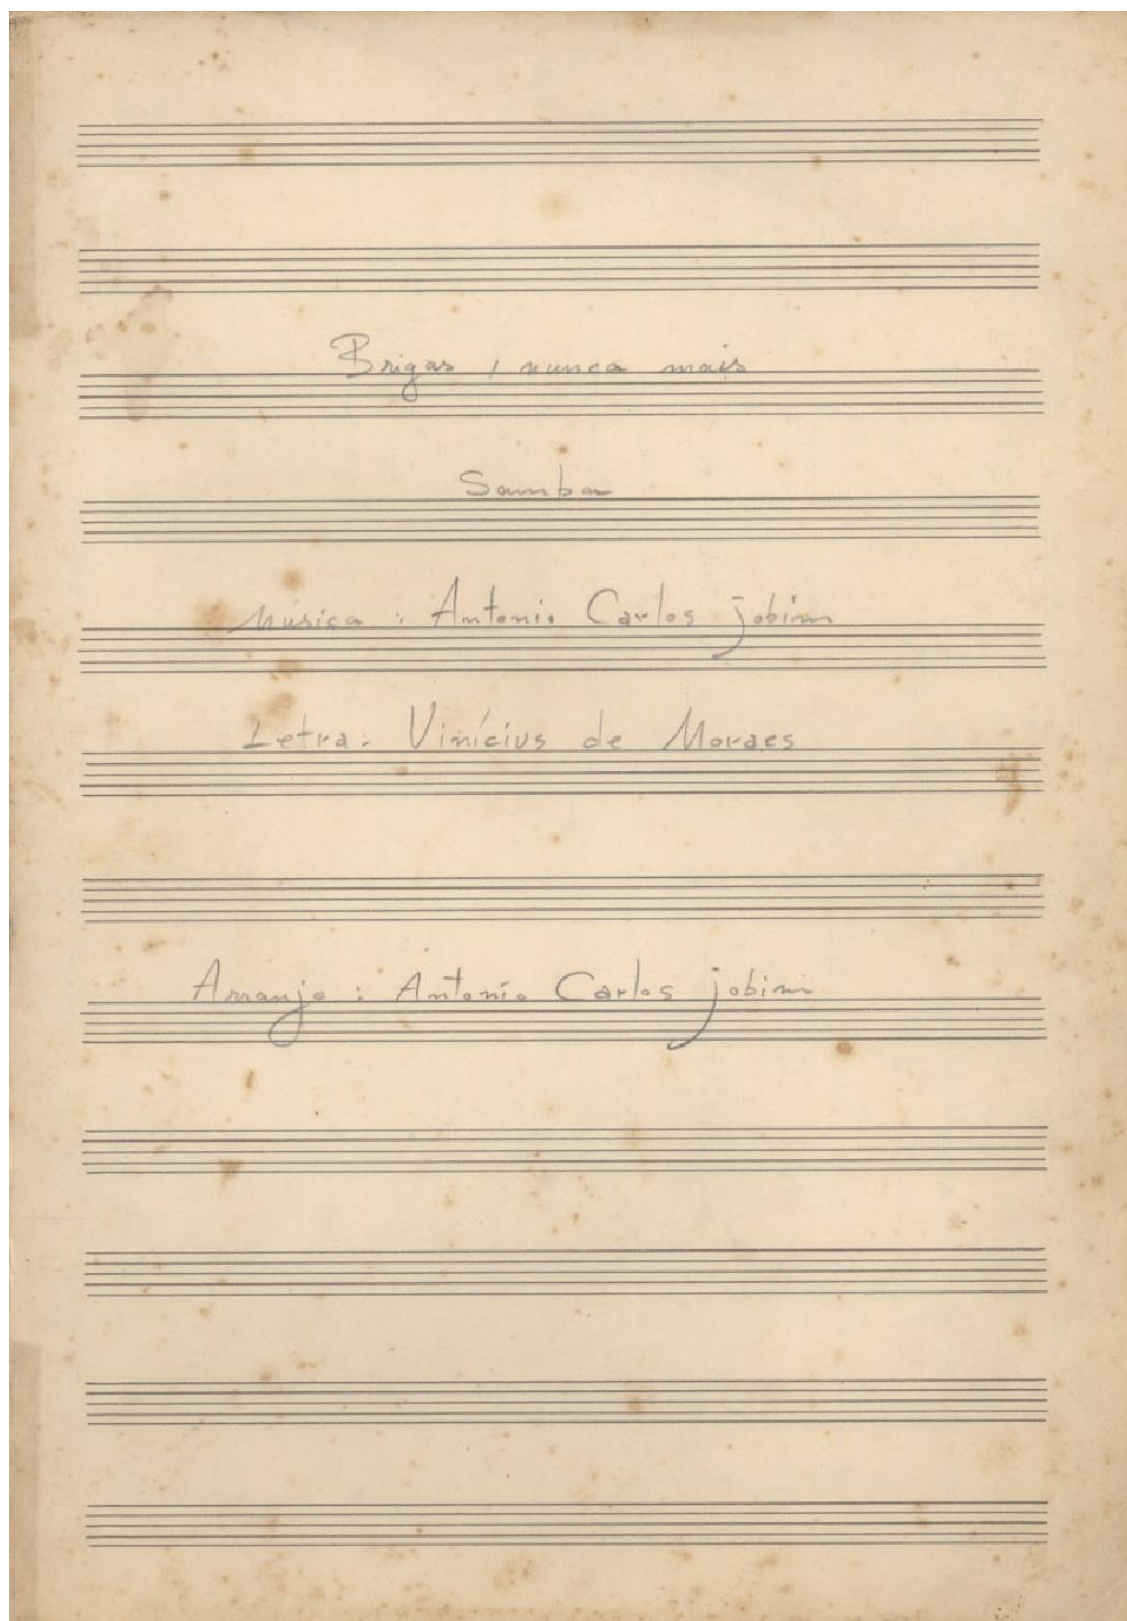 Brigas, nunca mais
Samba
Musica: Antonio Carlos jobim
Letra: Vinícius de Moraes
Arranjo: Antonio Carlos jobim